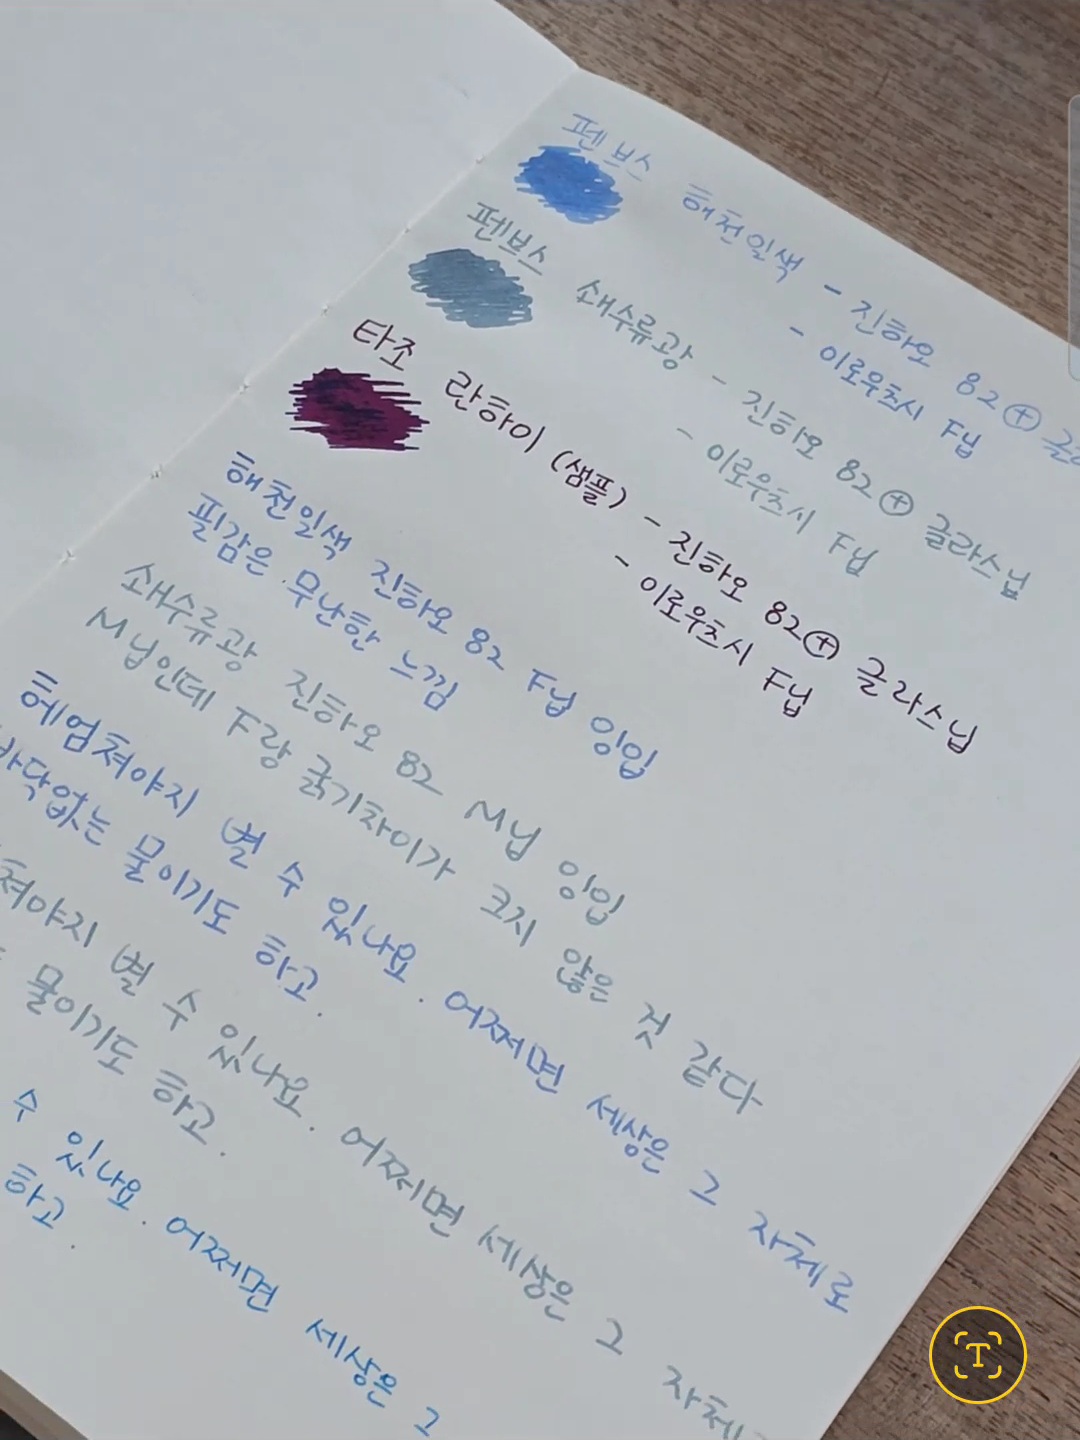 펜브스 해천일색 - 진하오 82 ⊕
- 이로우츠시 F닙
펜브스 쇄수류광 - 진하오 82 ⊕ 글라스닙
- 이로우츠시 F닙
타조 란하이 (샘플) - 진하오 82 ⊕ 글라스닙
- 이로우츠시 F닙
해천일색 진하오 82 F닙 잉입
필감은 무난한 느낌
쇄수류광 진하오 82 M닙 잉입
M닙인데 F랑 굵기차이가 크지 않은 것 같다
헤엄쳐야지 별 수 있나요. 어쩌면 세상은 그 자체로
바닥없는 물이기도 하고.
쳐야지 별 수 있나요. 어쩌면 세상은 그 자체
물이기도 하고.
수 있나요. 어쩌면 세상은 그
하고.